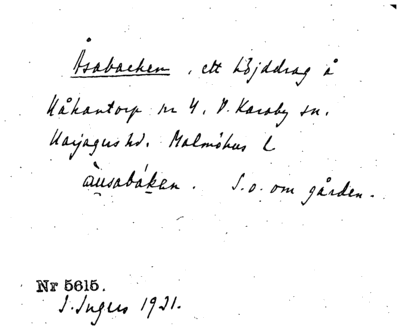 Åsabacken, ett höjddrag å
Håkantorp nr 4. V. Karaby sn.
Harjagers hd. Malmöhus l
åu̯sabákan. S.o. om gården.
Nr 5615.
I. Ingers 1921.